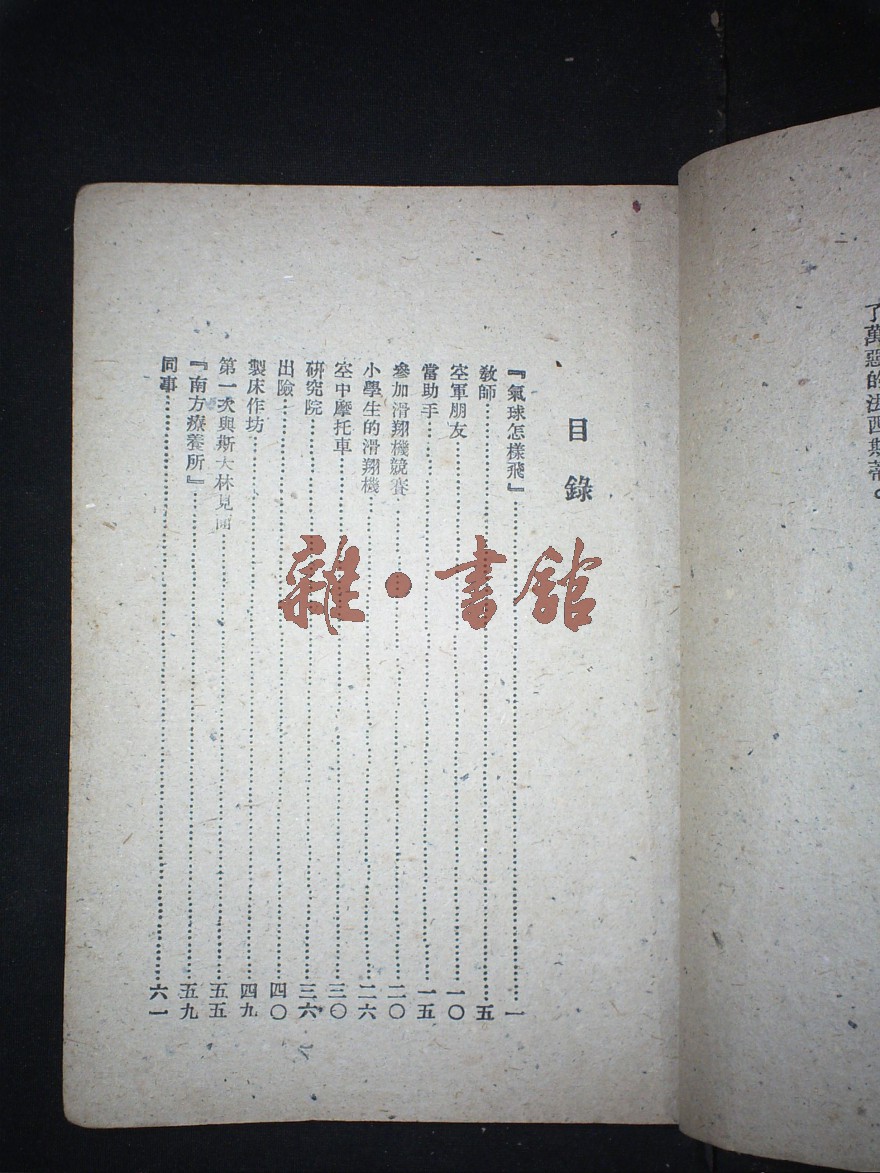 了萬惡的法西斯蒂。
目錄
『氣球怎樣飛』……一
教師……五
空軍朋友……一〇
當助手……一五
參加滑翔機競賽……二〇
小學生的滑翔機……二六
空中摩托車……三〇
研究院……三六
出險……四〇
製床作坊……四九
第一次與斯大林見面……五五
『南方療養所』……五九
同事……六一
雜·書館